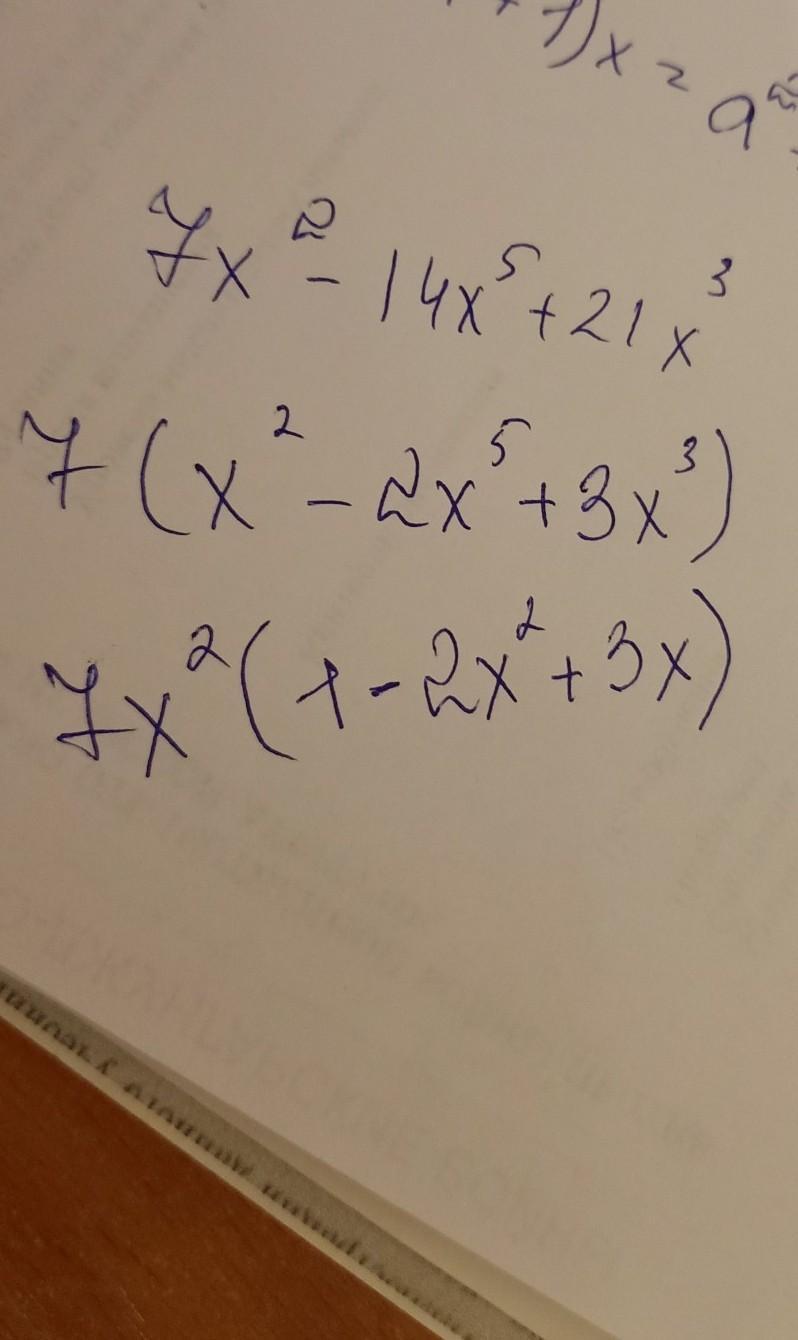 7)x = a²
7x² - 14x⁵ + 21x³
7(x² - 2x⁵ + 3x³)
7x²(1 - 2x² + 3x)